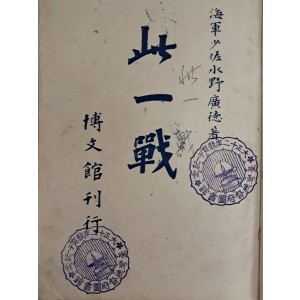 海軍少佐水野廣德著
此一戰
此一戰
博文館刊行